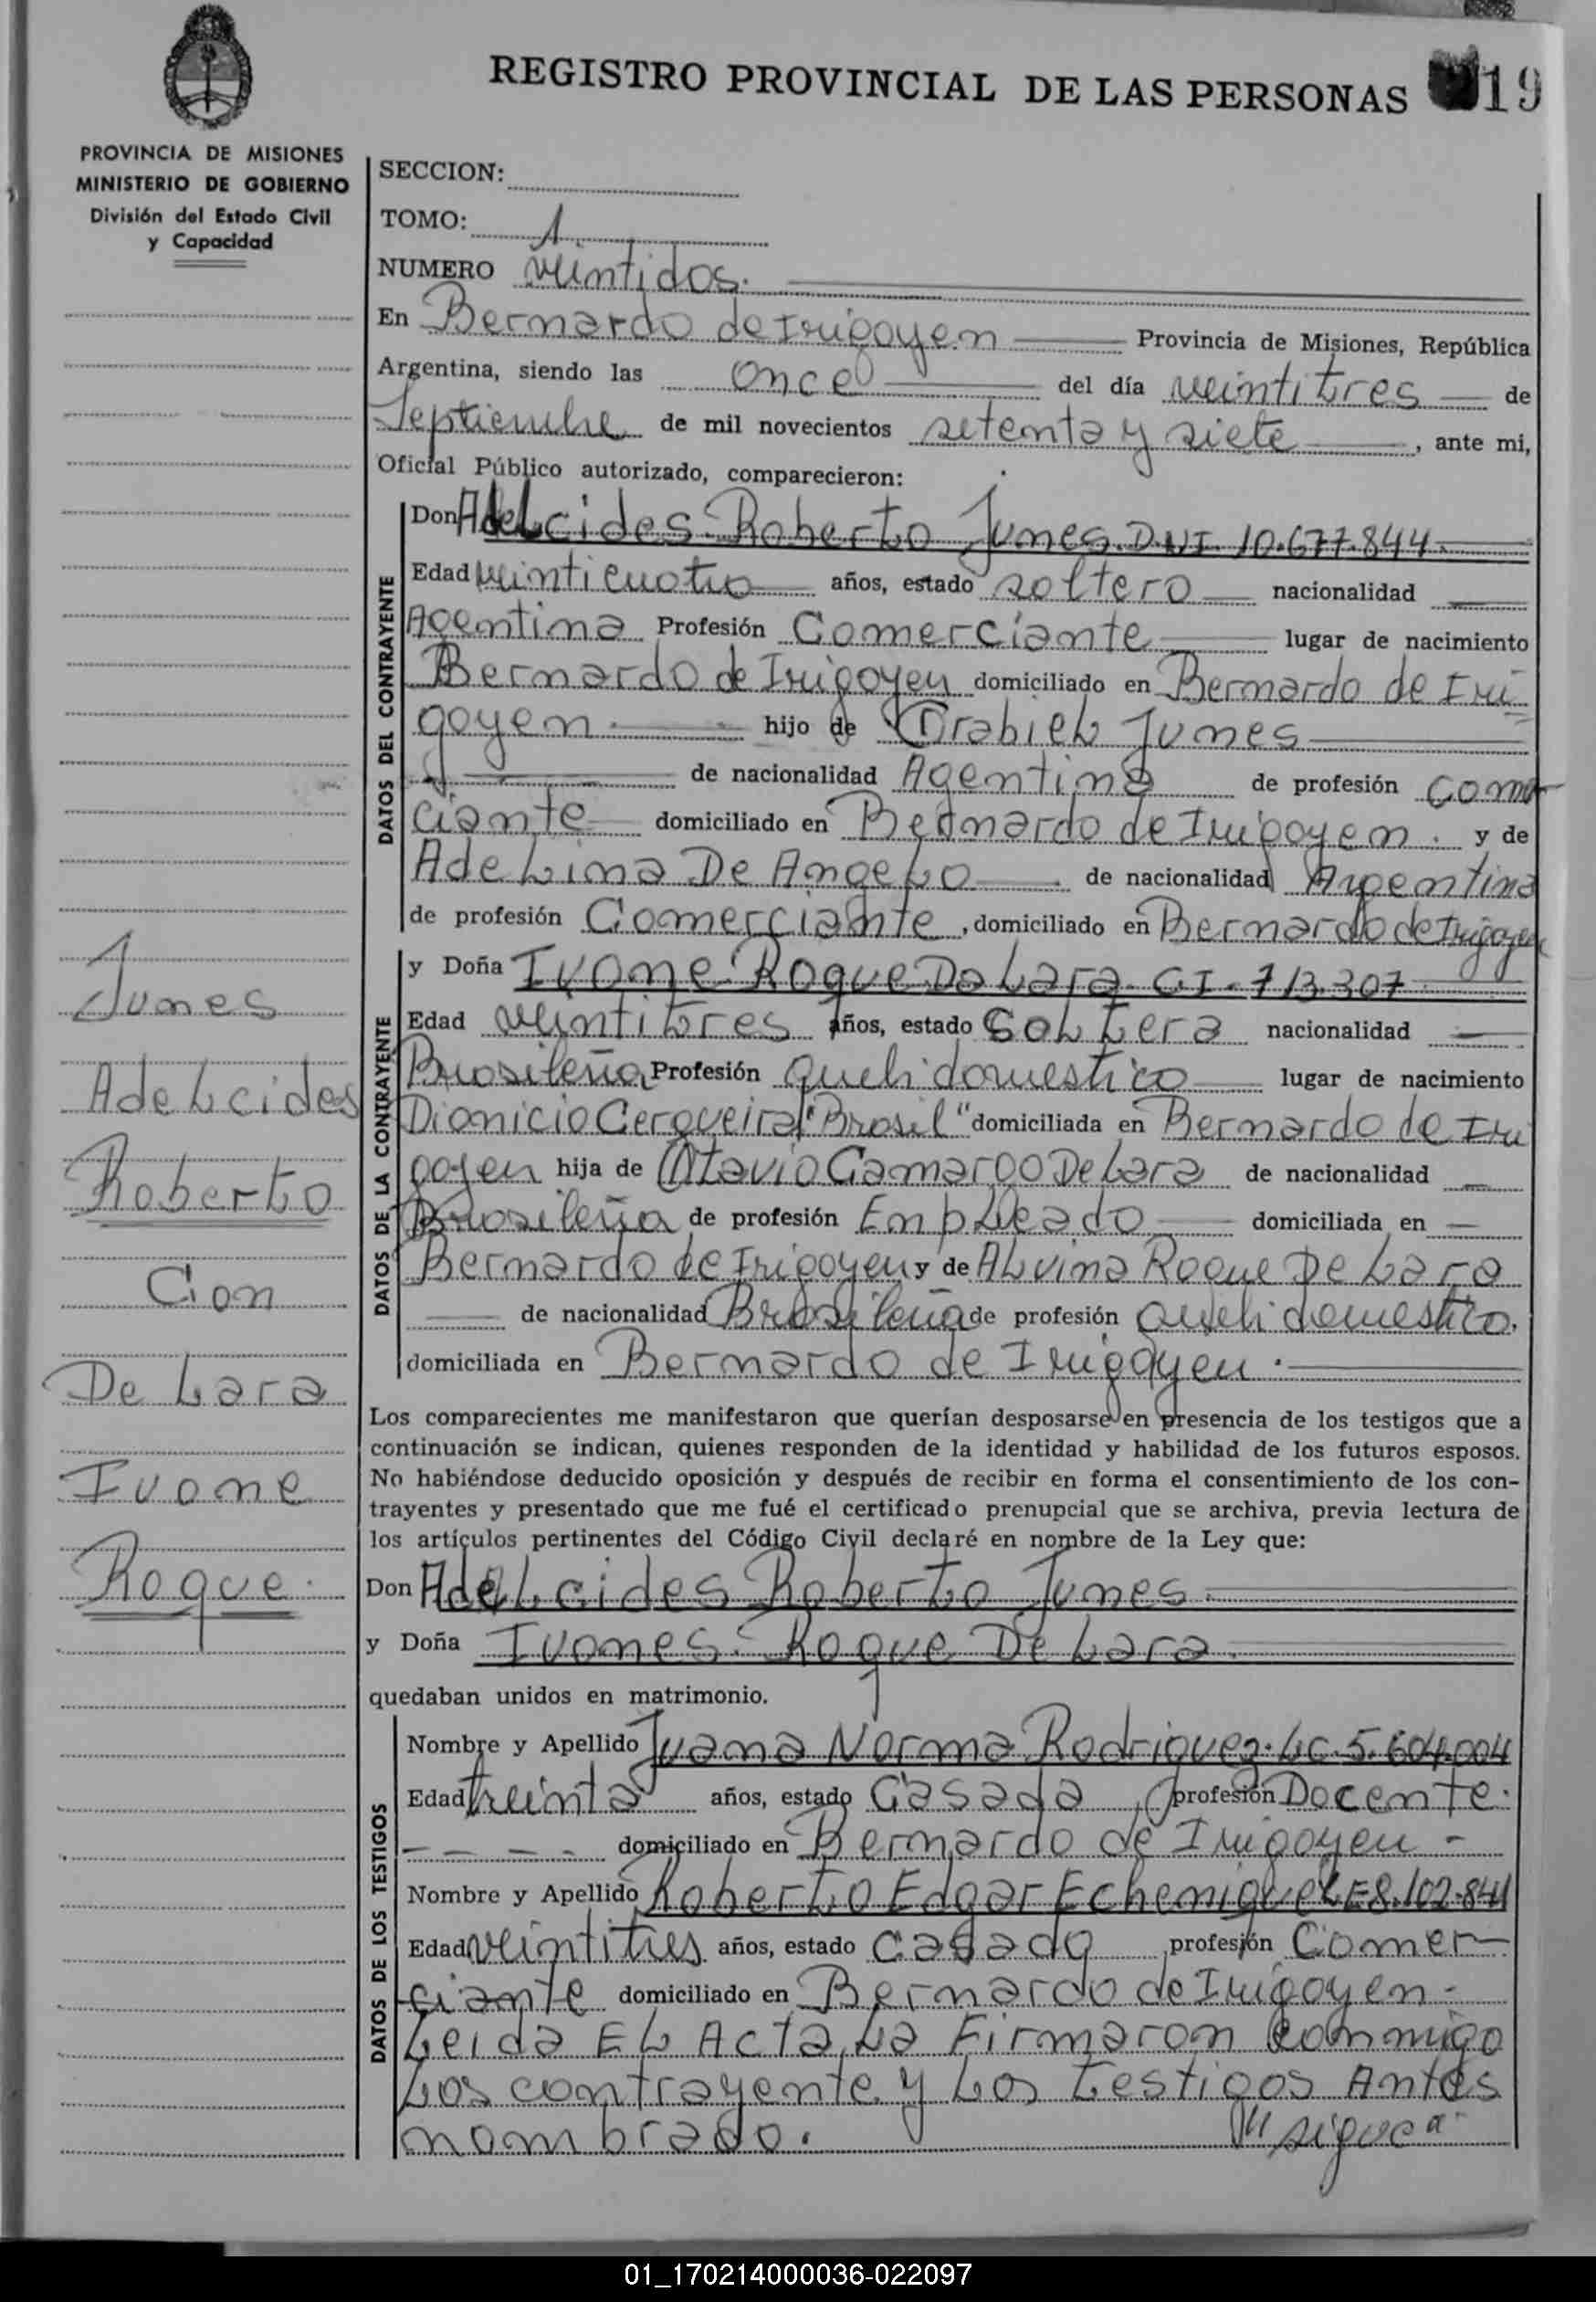 REGISTRO PROVINCIAL DE LAS PERSONAS 19
PROVINCIA DE MISIONES
MINISTERIO DE GOBIERNO
División del Estado Civil
y Capacidad
SECCION:
TOMO: 1.
NUMERO veintidos.
En Bernardo de Irigoyen Provincia de Misiones, República
Argentina, siendo las once del día veintitres de
Septiembre de mil novecientos setenta y siete, ante mi,
Oficial Público autorizado, comparecieron:
DATOS DEL CONTRAYENTE
Don Adelcides Roberto Junes. D.N.I. 10.677.844.
Edad veinticuatro años, estado soltero nacionalidad
Agentina Profesión Comerciante lugar de nacimiento
Bernardo de Irigoyen domiciliado en Bernardo de Iri
goyen hijo de Orabiel Junes
de nacionalidad Agentina de profesión comer
ciante domiciliado en Bernardo de Irigoyen. y de
Adelina De Angelo de nacionalidad Argentina
de profesión Comerciante, domiciliado en Bernardo de Irigoyen
DATOS DE LA CONTRAYENTE
y Doña Ivone Roque De Lara CI. 713.307
Edad veintitres años, estado Soltera nacionalidad
Brasileña Profesión Queh. domestico lugar de nacimiento
Dionicio Cerqueira "Brasil" domiciliada en Bernardo de Iri
goyen hija de Otavio Camargo De Lara de nacionalidad
Brasileña de profesión Empleado domiciliada en
Bernardo de Irigoyen y de Alvina Roque De Lara
de nacionalidad Brasileña de profesión Queh. domestico.
domiciliada en Bernardo de Irigoyen.
Los comparecientes me manifestaron que querían desposarse en presencia de los testigos que a
continuación se indican, quienes responden de la identidad y habilidad de los futuros esposos.
No habiéndose deducido oposición y después de recibir en forma el consentimiento de los con-
trayentes y presentado que me fué el certificado prenupcial que se archiva, previa lectura de
los artículos pertinentes del Código Civil declaré en nombre de la Ley que:
Don Adelcides Roberto Junes.
y Doña Ivones. Roque De Lara.
quedaban unidos en matrimonio.
DATOS DE LOS TESTIGOS
Nombre y Apellido Juana Norma Rodriguez. LC. 5.604.004
Edad treinta años, estado Casada, profesión Docente.
domiciliado en Bernardo de Irigoyen -
Nombre y Apellido Roberto Edgar Echenique LE 8.102.841
Edad veintitres años, estado casado profesión Comer-
ciante domiciliado en Bernardo de Irigoyen -
Leida El Acta, La Firmaron conmigo
Los contrayente y Los testigos Antes
nombrado. "sigue"
Junes
Adelcides
Roberto
Con
De Lara
Ivone
Roque.
01_170214000036-022097